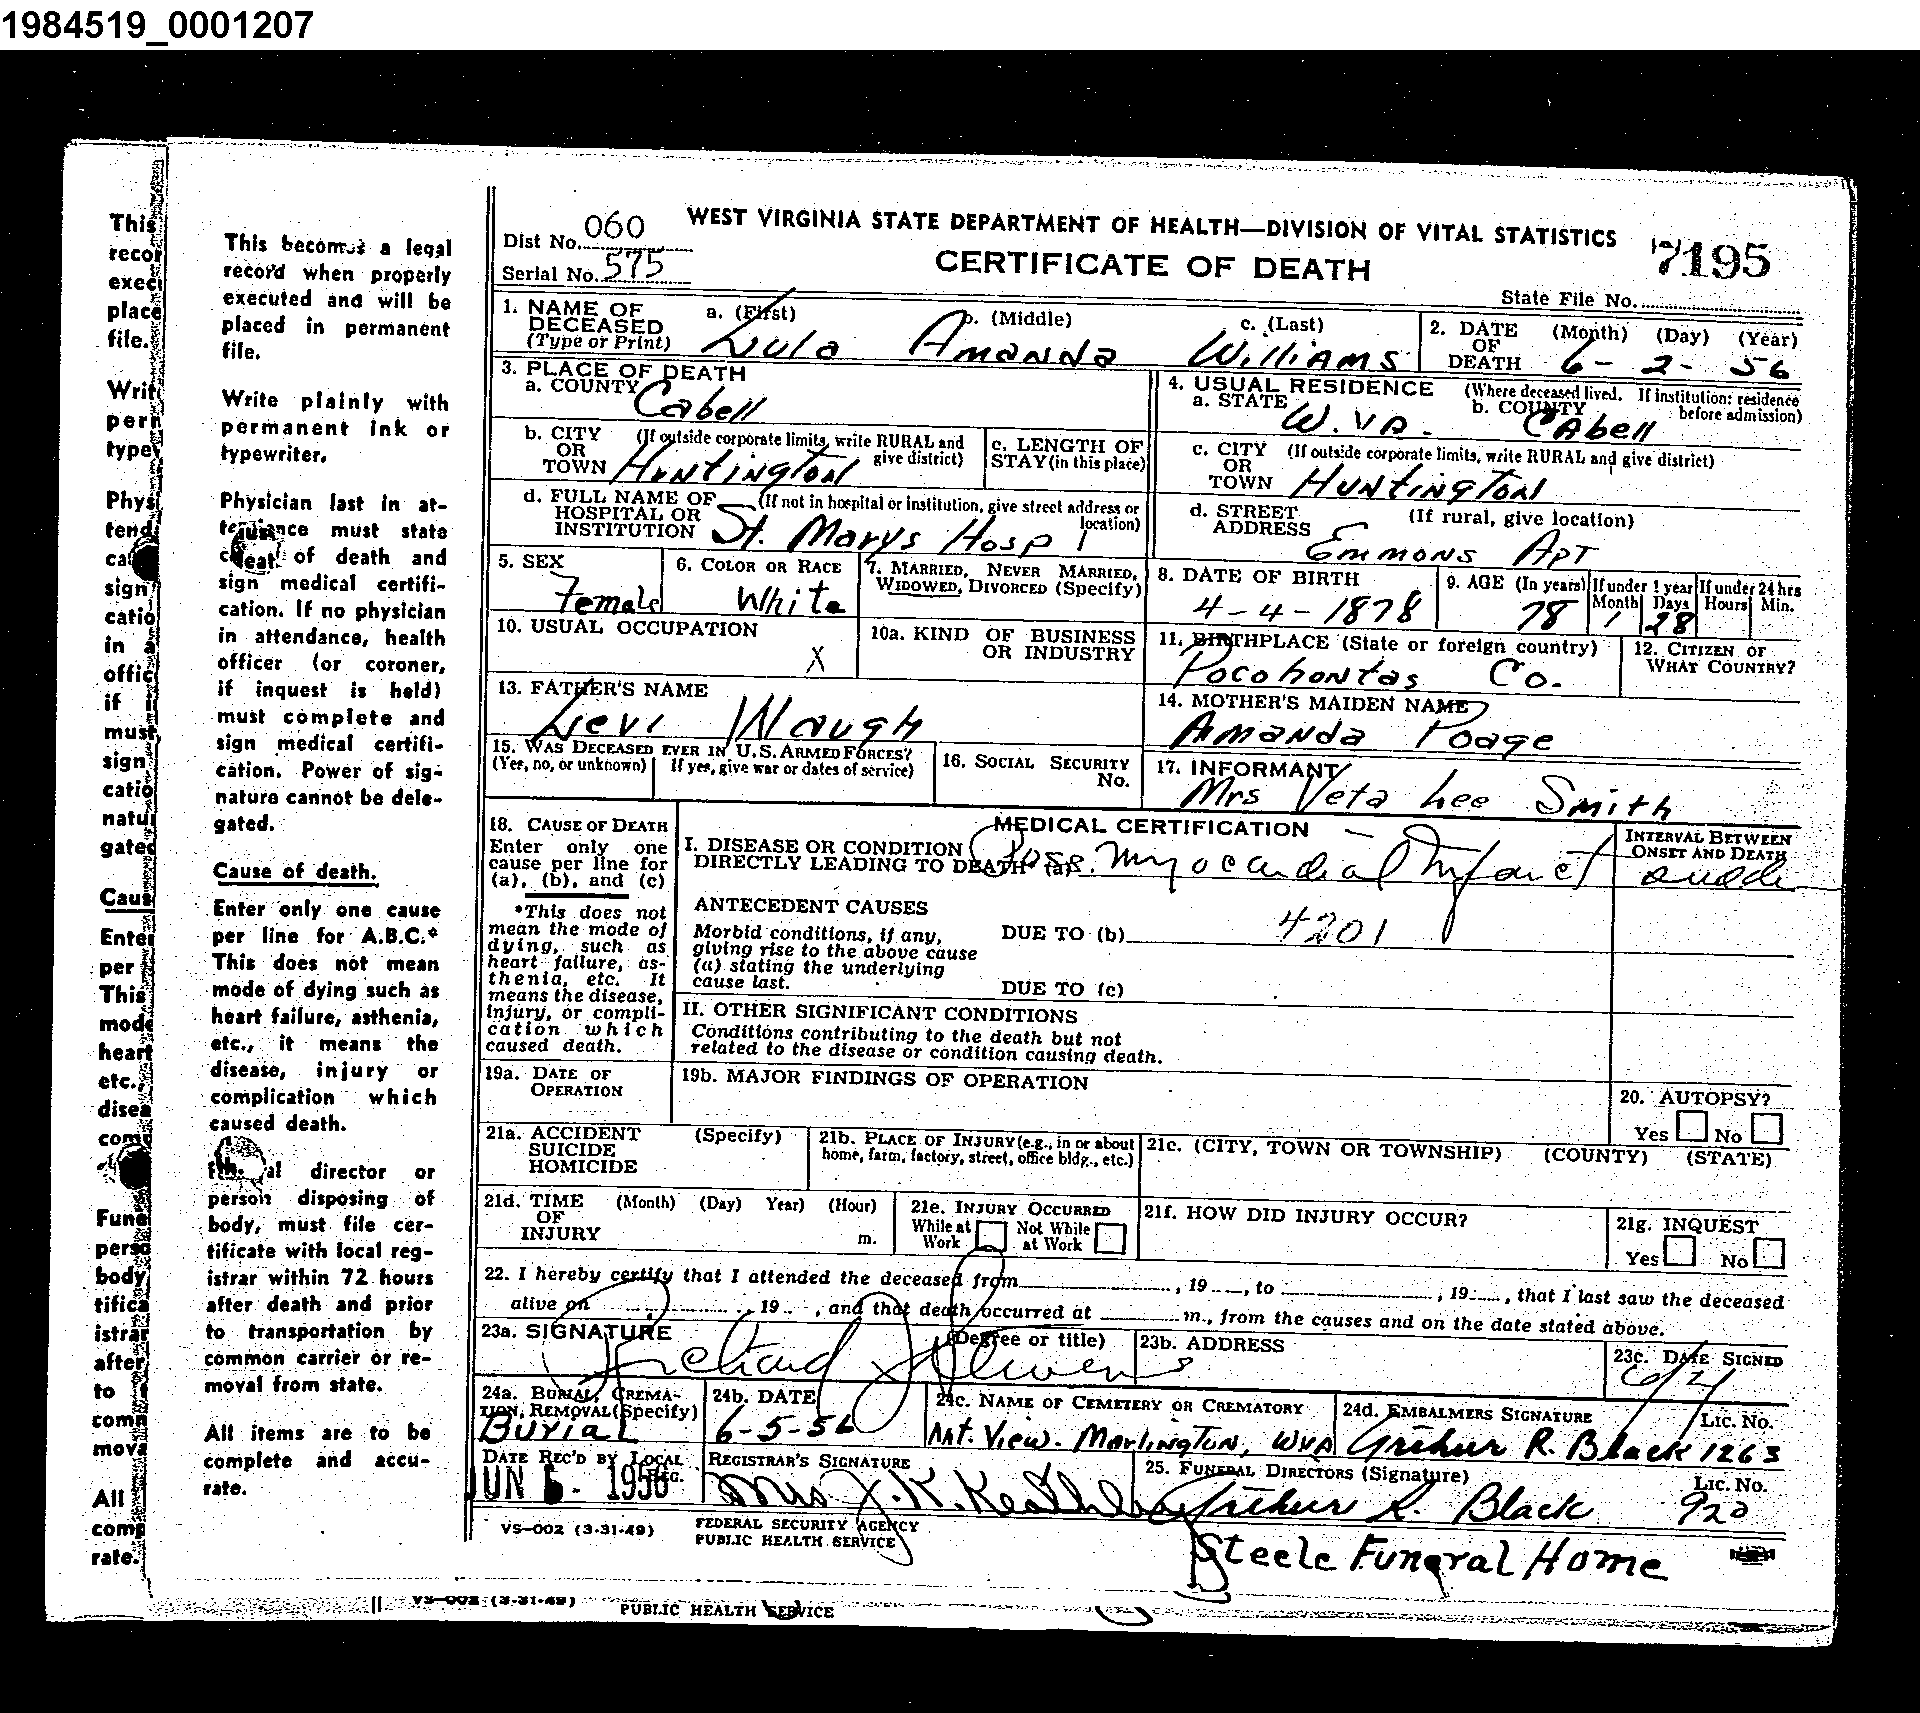 1984519_0001207
This becomes a legal
record when properly
executed and will be
placed in permanent
file.
Write plainly with
permanent ink or
typewriter.
Physician last in at-
tendance must state
of death and
sign medical certifi-
cation. If no physician
in attendance, health
officer (or coroner,
if inquest is held)
must complete and
sign medical certifi-
cation. Power of sig-
nature cannot be dele-
gated.
Cause of death.
Enter only one cause
per line for A.B.C.*
This does not mean
mode of dying such as
heart failure, asthenia,
etc., it means the
disease, injury or
complication which
caused death.
director or
person disposing of
body, must file cer-
tificate with local reg-
istrar within 72 hours
after death and prior
to transportation by
common carrier or re-
moval from state.
All items are to be
complete and accu-
rate.
WEST VIRGINIA STATE DEPARTMENT OF HEALTH—DIVISION OF VITAL STATISTICS
Dist No. 060
Serial No. 575
CERTIFICATE OF DEATH
7195
State File No.
1. NAME OF DECEASED (Type or Print) a. (First) b. (Middle) c. (Last)
Lula Amanda Williams
2. DATE OF DEATH (Month) (Day) (Year)
6- 2- 56
3. PLACE OF DEATH
a. COUNTY Cabell
4. USUAL RESIDENCE (Where deceased lived. If institution: residence before admission)
a. STATE W. Va. b. COUNTY Cabell
b. CITY OR TOWN (If outside corporate limits, write RURAL and give district) Huntington
c. LENGTH OF STAY (in this place)
c. CITY OR TOWN (If outside corporate limits, write RURAL and give district) Huntington
d. FULL NAME OF HOSPITAL OR INSTITUTION (If not in hospital or institution, give street address or location) St. Marys Hosp
d. STREET ADDRESS (If rural, give location) Emmons Apt
5. SEX Female
6. COLOR OR RACE White
7. MARRIED, NEVER MARRIED, WIDOWED, DIVORCED (Specify)
8. DATE OF BIRTH 4-4-1878
9. AGE (In years) 78 If under 1 year Month 1 Days 28 If under 24 hrs Hours Min.
10. USUAL OCCUPATION X
10a. KIND OF BUSINESS OR INDUSTRY
11. BIRTHPLACE (State or foreign country) Pocohontas Co.
12. CITIZEN OF WHAT COUNTRY?
13. FATHER'S NAME Levi Waugh
14. MOTHER'S MAIDEN NAME Amanda Poage
15. WAS DECEASED EVER IN U.S. ARMED FORCES? (Yes, no, or unknown) If yes, give war or dates of service)
16. SOCIAL SECURITY No.
17. INFORMANT Mrs Veta Lee Smith
18. CAUSE OF DEATH
Enter only one
cause per line for
(a), (b), and (c)
*This does not
mean the mode of
dying, such as
heart failure, as-
thenia, etc. It
means the disease,
injury, or compli-
cation which
caused death.
MEDICAL CERTIFICATION
I. DISEASE OR CONDITION
DIRECTLY LEADING TO DEATH* (a) Poss. Myocardial Infarct
INTERVAL BETWEEN ONSET AND DEATH
ANTECEDENT CAUSES
Morbid conditions, if any,
giving rise to the above cause
(a) stating the underlying
cause last.
DUE TO (b) 4201
DUE TO (c)
II. OTHER SIGNIFICANT CONDITIONS
Conditions contributing to the death but not
related to the disease or condition causing death.
19a. DATE OF OPERATION
19b. MAJOR FINDINGS OF OPERATION
20. AUTOPSY?
Yes No
21a. ACCIDENT SUICIDE HOMICIDE (Specify)
21b. PLACE OF INJURY (e.g., in or about home, farm, factory, street, office bldg., etc.)
21c. (CITY, TOWN OR TOWNSHIP) (COUNTY) (STATE)
21d. TIME OF INJURY (Month) (Day) Year) (Hour) m.
21e. INJURY OCCURRED While at Work Not While at Work
21f. HOW DID INJURY OCCUR?
21g. INQUEST
Yes No
22. I hereby certify that I attended the deceased from , 19 , to , 19 , that I last saw the deceased
alive on , 19 , and that death occurred at m., from the causes and on the date stated above.
23a. SIGNATURE (Degree or title) Richard Stevens
23b. ADDRESS
23c. DATE SIGNED
24a. BURIAL, CREMA-
TION, REMOVAL (Specify) Burial
24b. DATE 6-5-56
24c. NAME OF CEMETERY OR CREMATORY Mt. View. Marlington, WVA
24d. EMBALMERS SIGNATURE Lic. No.
Arthur R. Black 1263
DATE REC'D BY LOCAL REG. JUN 1956
REGISTRAR'S SIGNATURE
Mrs J. K.
25. FUNERAL DIRECTORS (Signature) Lic. No.
Arthur R. Black 920
Steele Funeral Home
VS-002 (3-31-49)
FEDERAL SECURITY AGENCY
PUBLIC HEALTH SERVICE
VS-002 (3-31-49)
PUBLIC HEALTH SERVICE